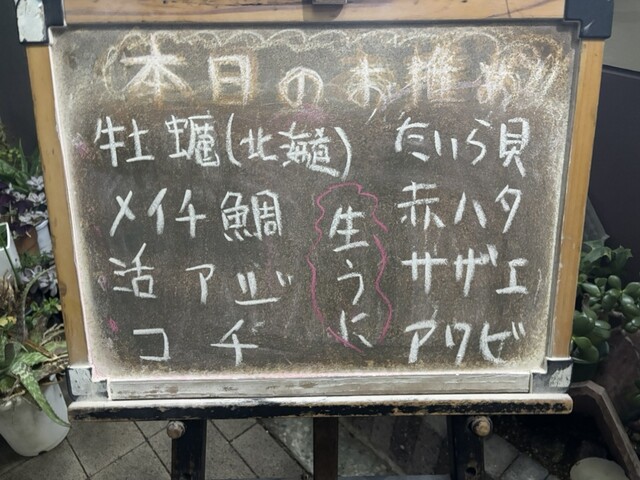 本日のお推め!!
牡蠣(北海道)
メイチ鯛
活アジ
コチ
生うに
たいら貝
赤ハタ
サザエ
アワビ